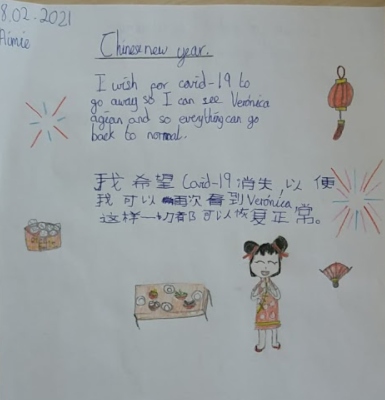 8.02.2021
Aimie
Chinese new year.
I wish for covid-19 to
go away so I can see Verónica
again and so everything can go
back to normal.
我希望Covid-19消失,以便
我可以再次看到Verónica
这样一切都可以恢复正常。